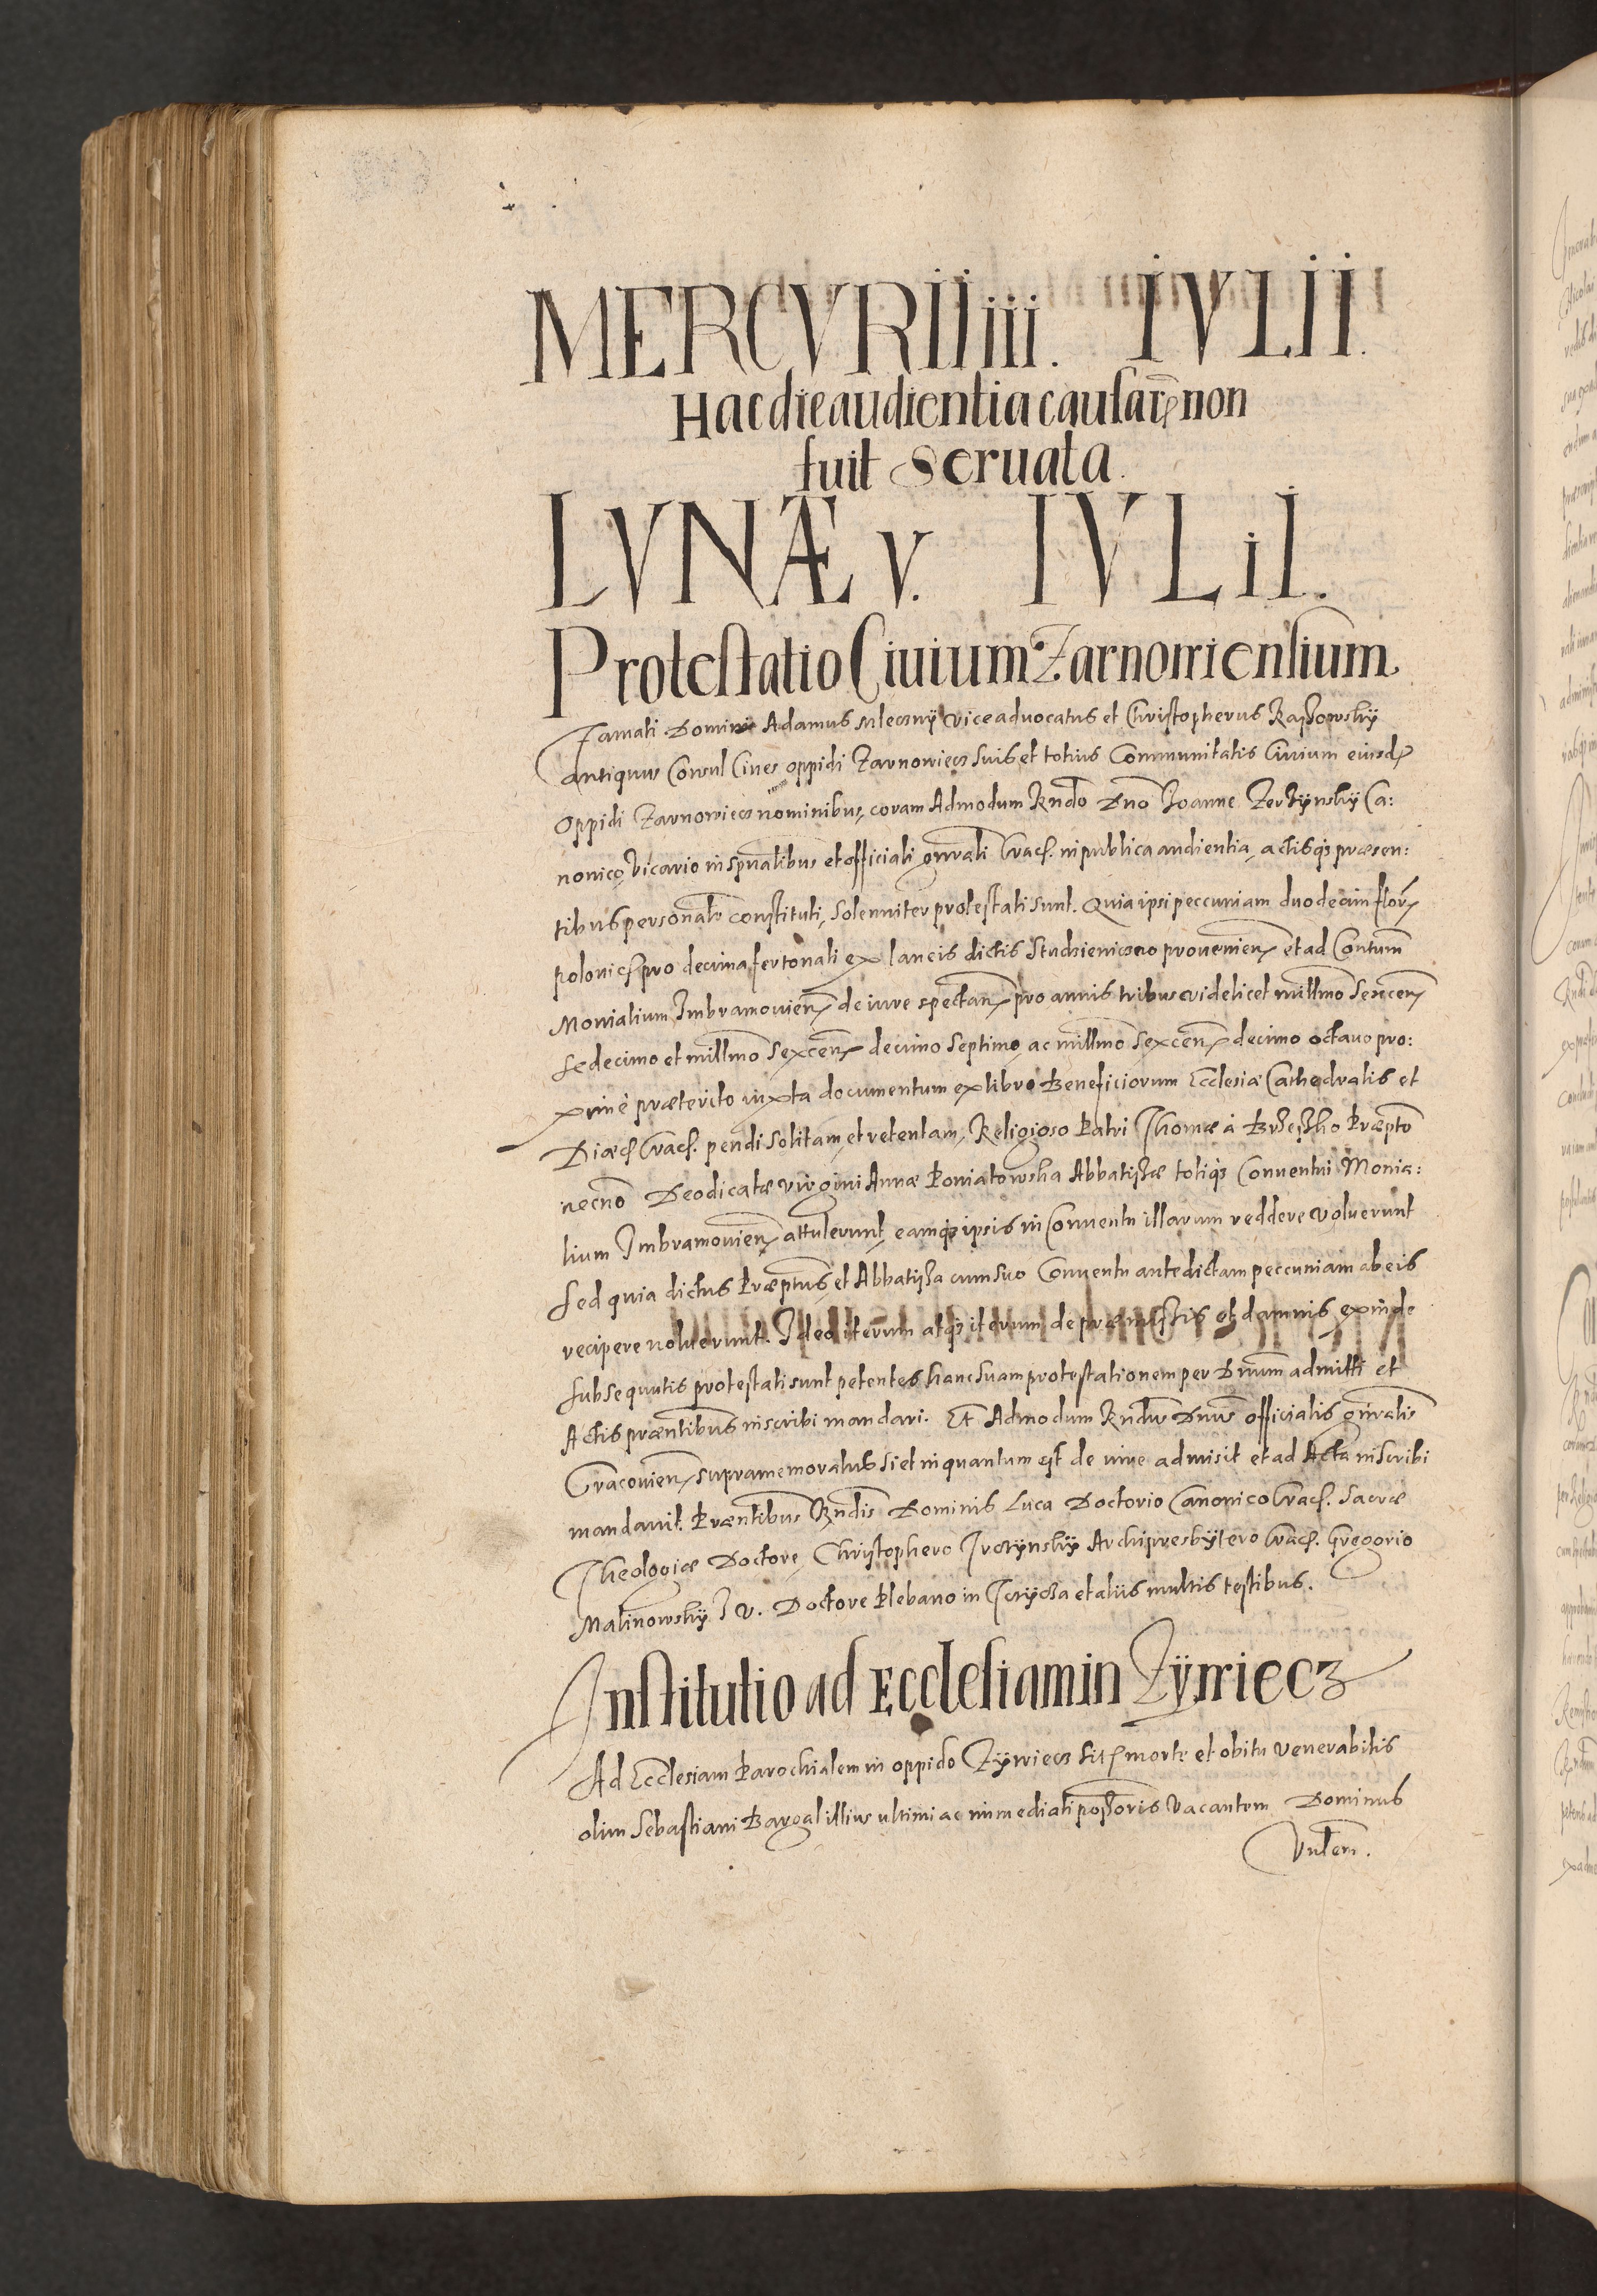 MERCVRII iiii. IVLII.
Hac die audientia causarꝫ non
fuit Seruata.
LVNÆ v. IVLiI.
Protestatio Ciuium Zarnowiensium
Famati Domini Adamus Mlecznÿ viceaduocatus et Christopherus Kaszowskÿ
antiquus Consul Ciues oppidi Zarnowiecz suis et totius Communitatis Ciuium eiusdē
Oppidi Zarnowiecz nominibus, coram Admodum Rndo Dno Joanne Zerzÿnskÿ Ca:
nonico, Vicario in spũalibus et officiali gñrali Cracꝭ. in publica audientia, actisqꝫ præsen:
tibus personalr̃ constituti, Solenniter protestati sunt. Quia ipsi peccuniam duodecim florꝭ
polonicꝭ pro decima fertonali ex laneis dictis Studzieniczno prouenienꝭ et ad Conṽtum
Monialium Imbramouienꝭ de iure spectanꝭ pro annis tribus videlicet millmõ Sexcenꝭ
sedecimo et millmõ Sexcenꝭ decimo Septimo, ac millmõ Sexcenꝭ decimo octauo pro:
ximè præterito iuxta documentum ex libro Beneficiorum Ecclesiæ Cathedralis et
Diæcꝭ Cracꝭ. pendi solitam, et retentam, Religioso Patri Thomæ à Brzeszko Præpto
necnõ Deodicatæ virgini Annæ Poniatowska Abbatissæ totiqꝫ Conuentui Monia:
lium Imbramouienꝭ attulerunt, eamqꝫ ipsis in Conuentu illarum reddere voluerunt
sed quia dictus Præptus, et Abbatissa cum suo Conuentu antedictam peccuniam ab eis
recipere noluerunt. Ideo iterum atqꝫ iterum de præmissis et damnis exinde
subsequutis protestati sunt petentes hanc suam protestationem per Dnũm admitti et
Actis præntibus inscribi mandari. Et Admodum Rndus Dnus officialis gñralis
Cracouienꝭ supramemoratus si et in quantum est de iure admisit et ad Acta inscribi
mandauit. Præntibus Vndis Dominis Luca Doctorio Canonico Cracꝭ. Sacræ
Theologiæ Doctore, Christophero Irzÿnskÿ Archipresbÿtero Cracꝭ. Gregorio
Malinowskÿ I V. Doctore Plebano in et aliis multis testibus.
Institutio ad Ecclesiam in Zÿwiecz
Ad Ecclesiam Parochialem in oppido Zÿwiecz sitꝭ morte et obitu venerabilis
olim Sebastiani Bargal illius ultimi ac immediati possoris vacantem Dominus
Vulem.